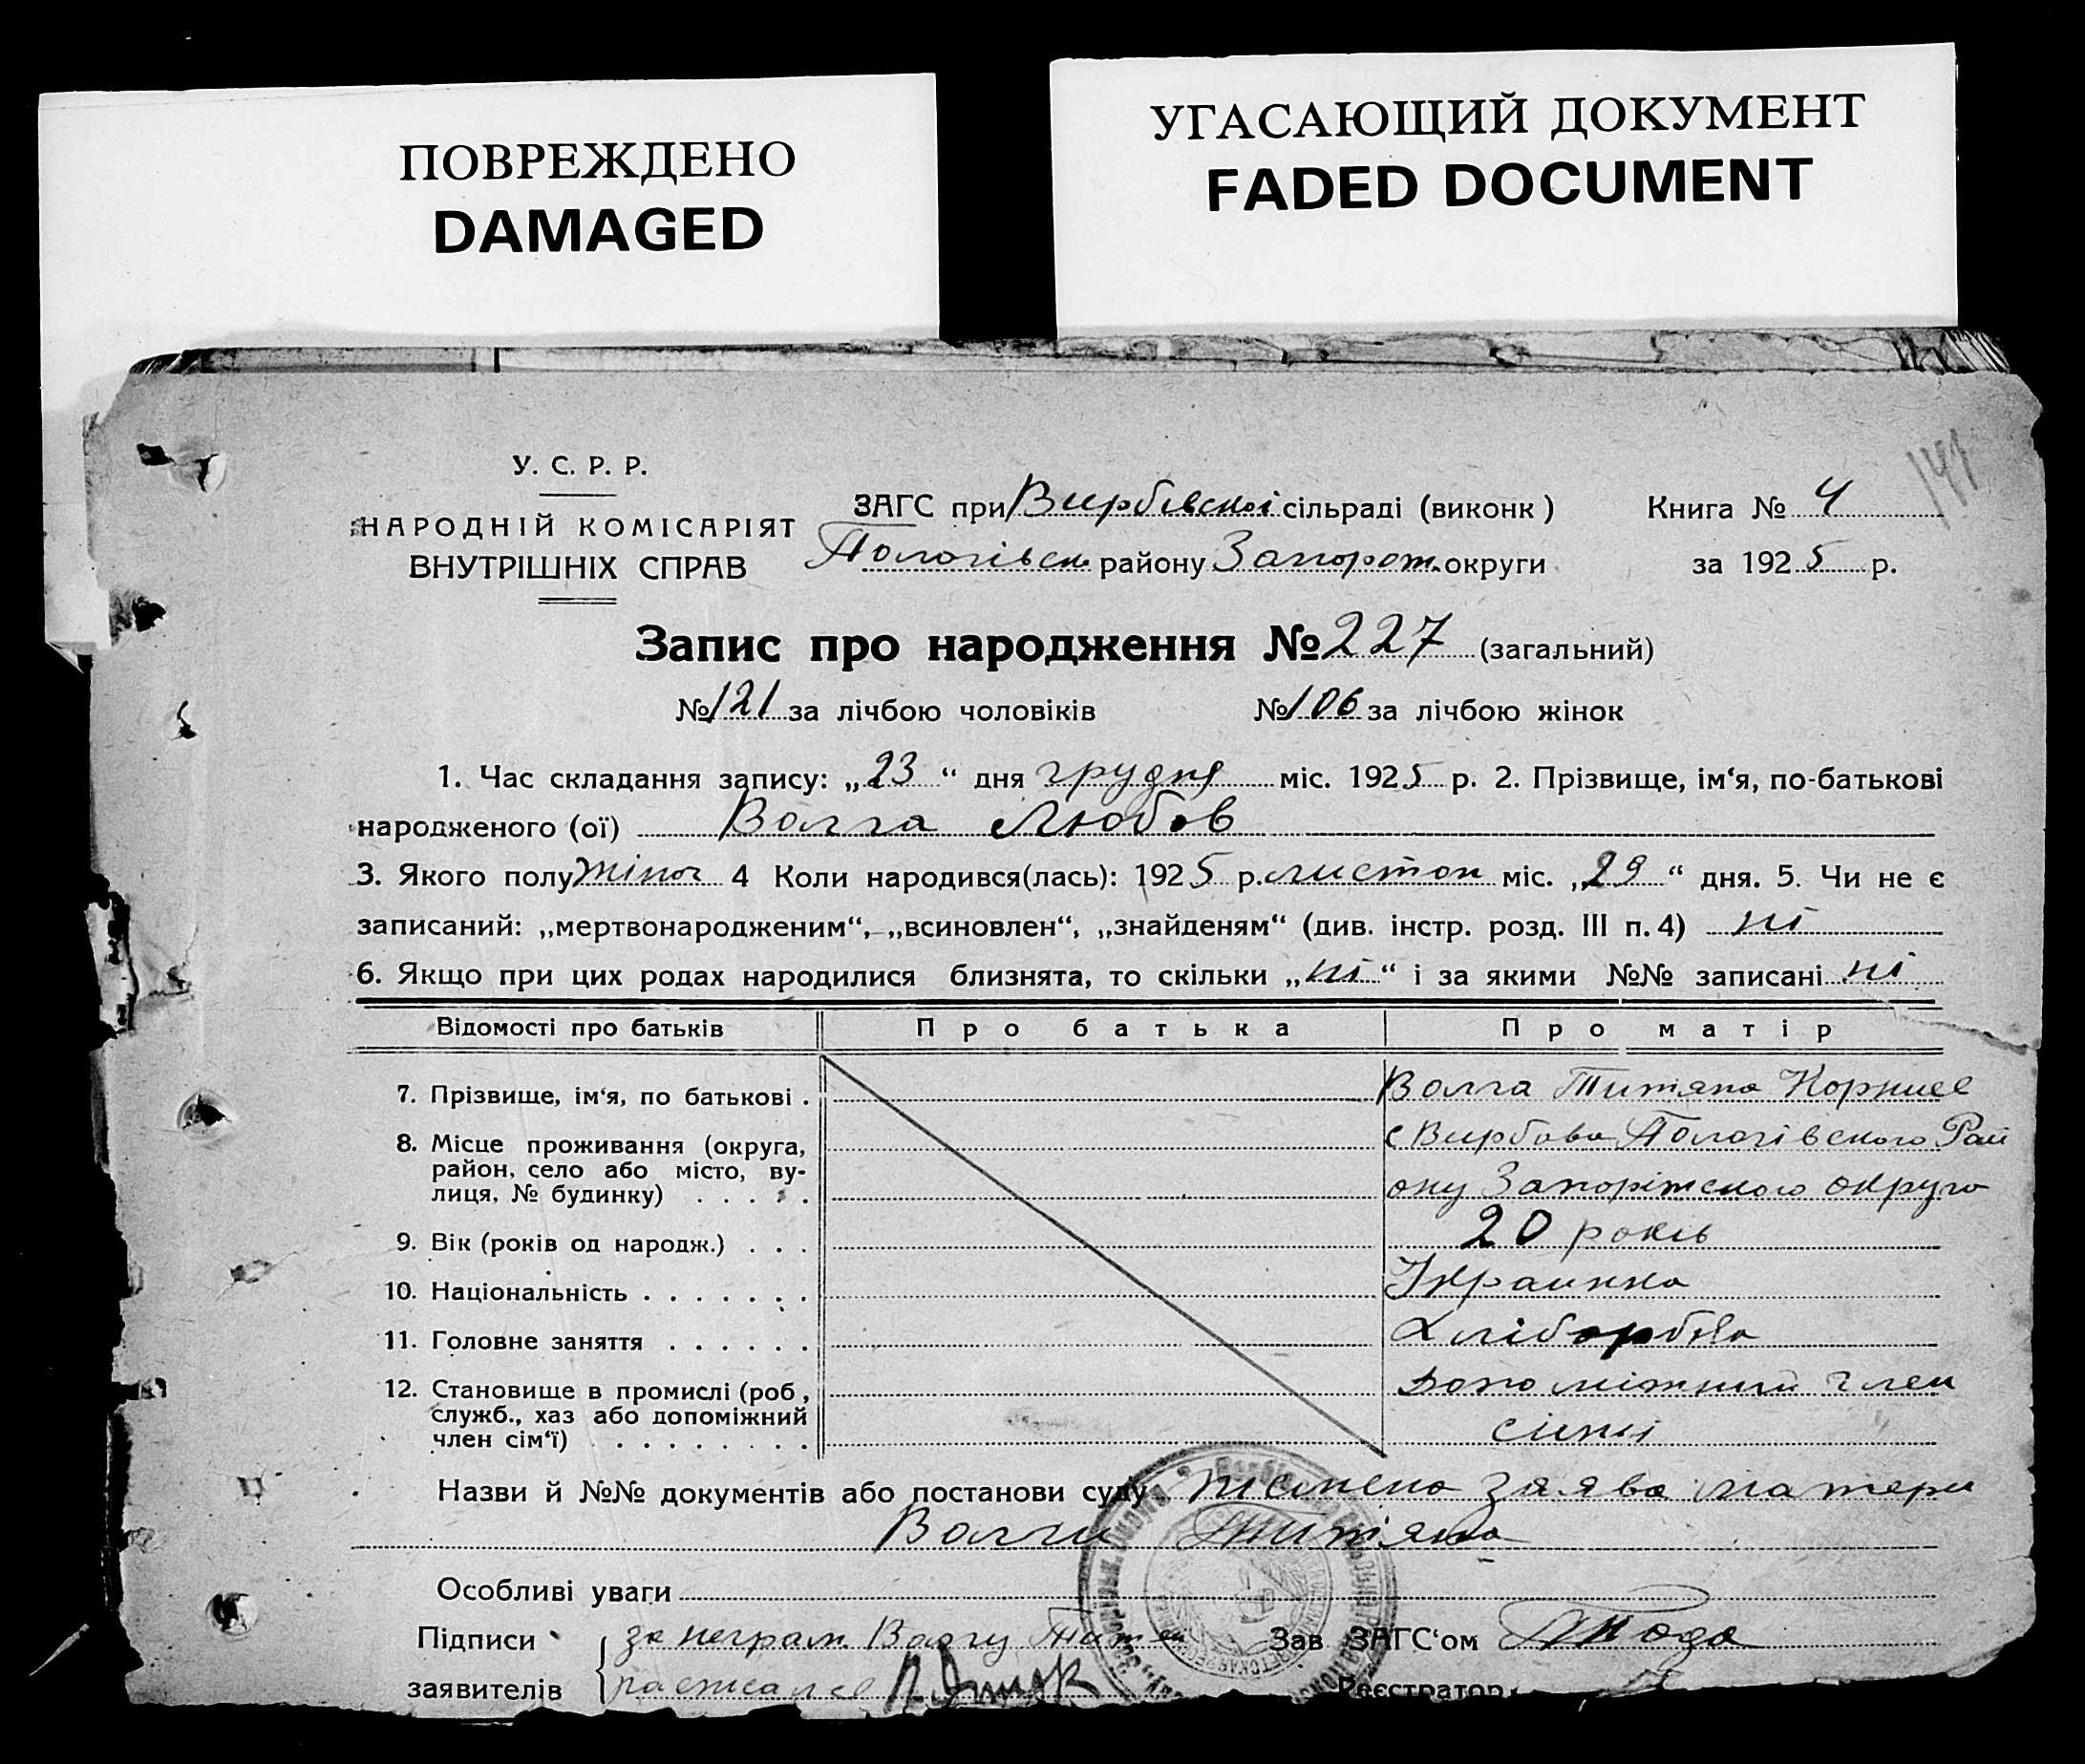 ПОВРЕЖДЕНО
DAMAGED
УГАСАЮЩИЙ ДОКУМЕНТ
FADED DOCUMENT
141
У. С. Р. Р.
НАРОДНІЙ КОМІСАРІЯТ
ВНУТРІШНІХ СПРАВ
ЗАГС при Вирбівскої сільраді (виконк )
Пологівск району Запорож. округи
Книга № 4
за 1925 р.
Запис про народження № 227 (загальний)
№ 121 за лічбою чоловіків № 106 за лічбою жінок
1. Час складання запису: „23“ дня грудня міс. 1925 р. 2. Прізвище, ім‘я, по-батькові
народженого (ої) Волга Любов
3. Якого полу жіноч 4 Коли народився(лась): 1925 р. листоп міс. „29“ дня. 5. Чи не є
записаний: „мертвонародженим“, „всиновлен“, „знайденям“ (див. інстр. розд. III п. 4) ні
6. Якщо при цих родах народилися близнята, то скільки „ні“ і за якими №№ записані ні
Відомості про батьків Про батька Про матір
7. Прізвище, ім‘я, по батькові . Волга Титяна Корниев
8. Місце проживання (округа, с Вирбова Пологівского Рай
район, село або місто, ву-
лиця, № будинку) . . . . . ону Запоріжского округа
9. Вік (років од народж.) . . . 20 років
10. Національність . . . . . . . Украинка
11. Головне заняття . . . . . .
12. Становище в промислі (роб , допоміжний член
служб., хаз або допоміжний
член сім‘ї) . . . . . . . . . сімьі
Назви й №№ документів або постанови суду заява матери
Волги Титяна
Особливі уваги
Підписи за неграм. Волгу Титян Зав ЗАГС‘ом
заявителів расписался Реєстратор